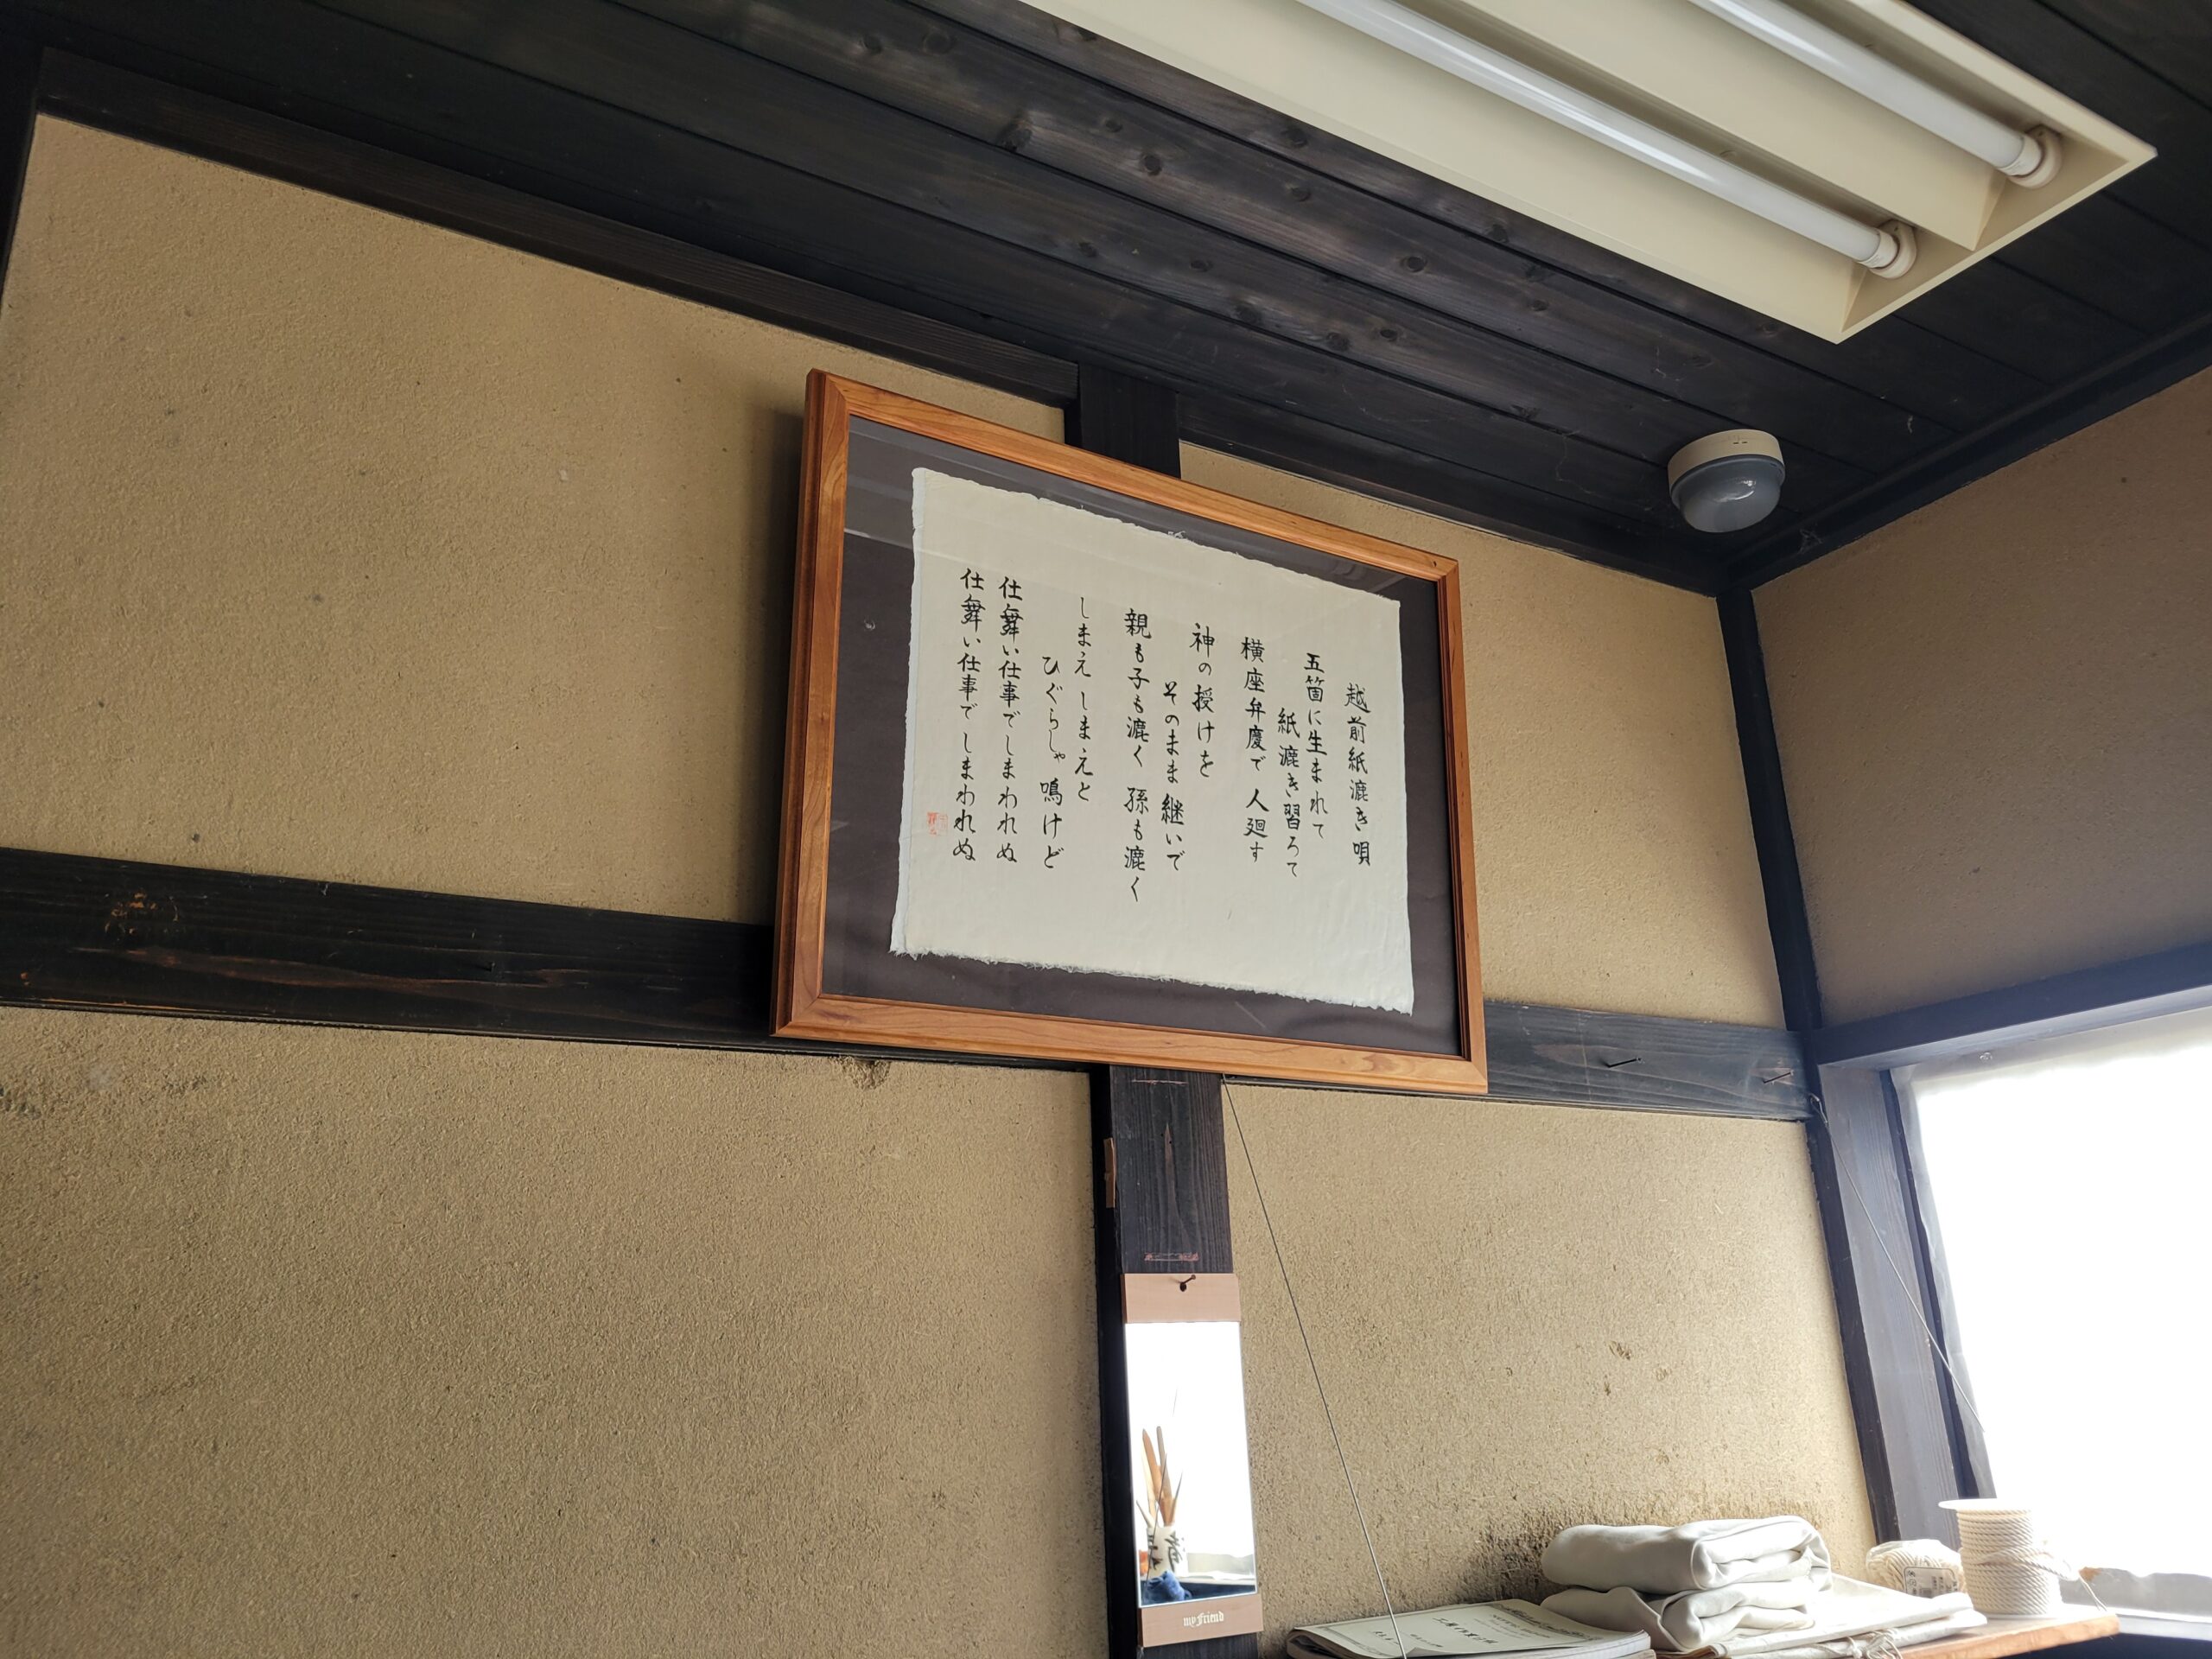 越前紙漉き唄
五箇に生まれて
紙漉き習ろて
横座弁慶で 人廻す
神の授けを
そのまま継いで
親も子も漉く 孫も漉く
しまえしまえと
ひぐらしゃ鳴けど
仕舞い仕事でしまわれぬ
仕舞い仕事でしまわれぬ
my Friend